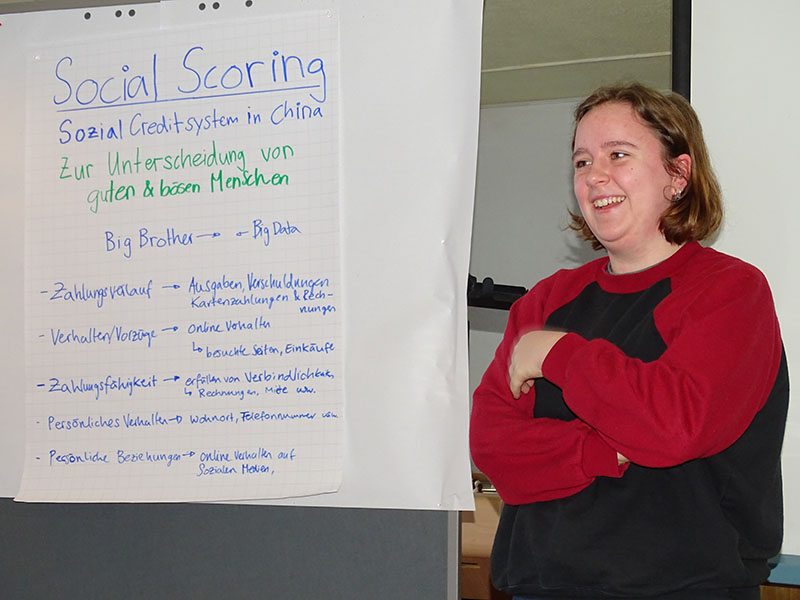 Social Scoring
Sozial Creditsystem in China
Zur Unterscheidung von
guten & bösen Menschen
Big Brother → ← Big Data
- Zahlungsverlauf → Ausgaben, Verschuldungen
Kartenzahlungen & Rech-
nungen
- Verhalten/Vorzüge → online Verhalten
↳ besuchte Seiten, Einkäufe
- Zahlungsfähigkeit → erfüllen von Verbindlichkeiten
↳ Rechnungen, Miete usw.
- Persönliches Verhalten → Wohnort, Telefonnummer usw.
- Persönliche Beziehungen → online Verhalten auf
Sozialen Medien,